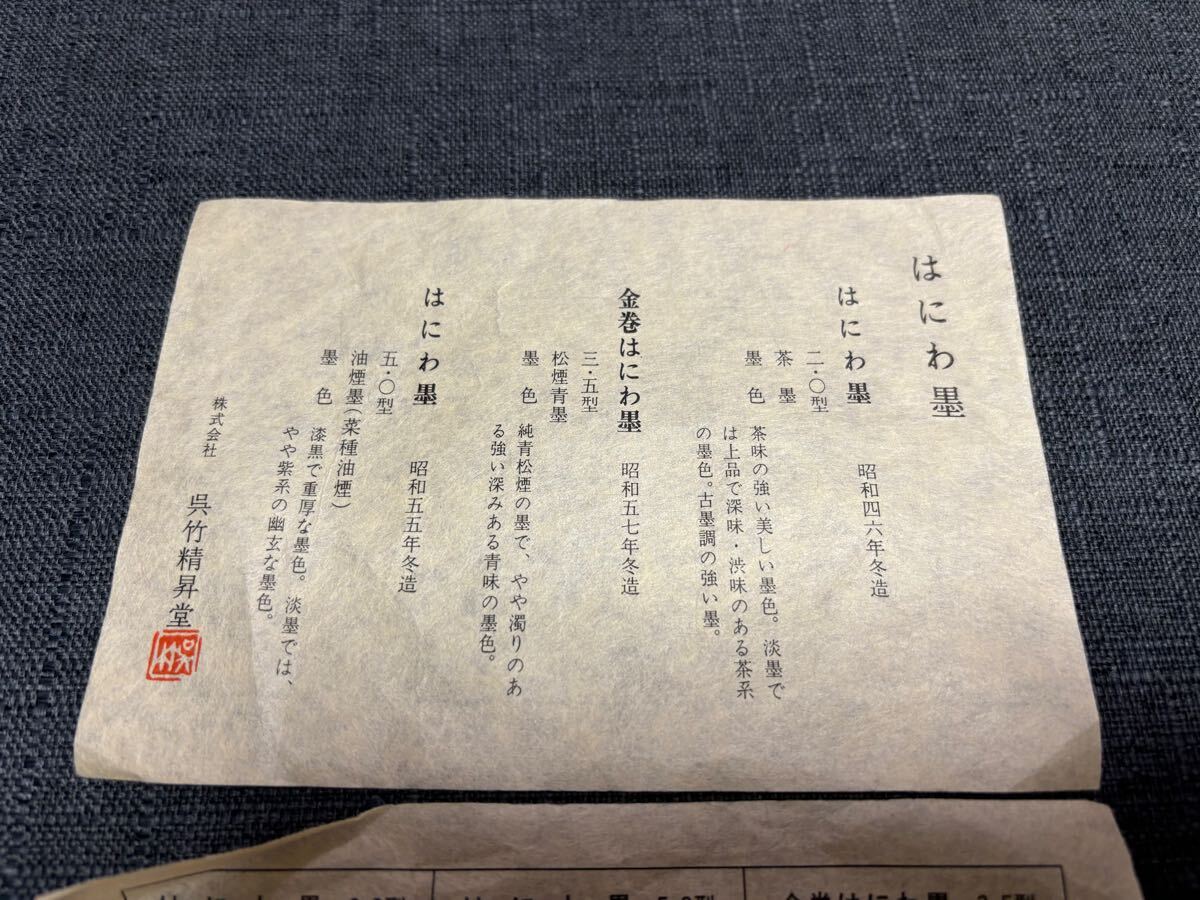 はにわ墨
はにわ墨　昭和四六年冬造
二・〇型
茶墨
墨色　茶味の強い美しい墨色。淡墨で
は上品で深味・渋味のある茶系
の墨色。古墨調の強い墨。
金巻はにわ墨　昭和五七年冬造
三・五型
松煙青墨
墨色　純青松煙の墨で、やや濁りのあ
る強い深みある青味の墨色。
はにわ墨　昭和五五年冬造
五・〇型
油煙墨（菜種油煙）
墨色　漆黒で重厚な墨色。淡墨では、
やや紫系の幽玄な墨色。
株式会社　呉竹精昇堂